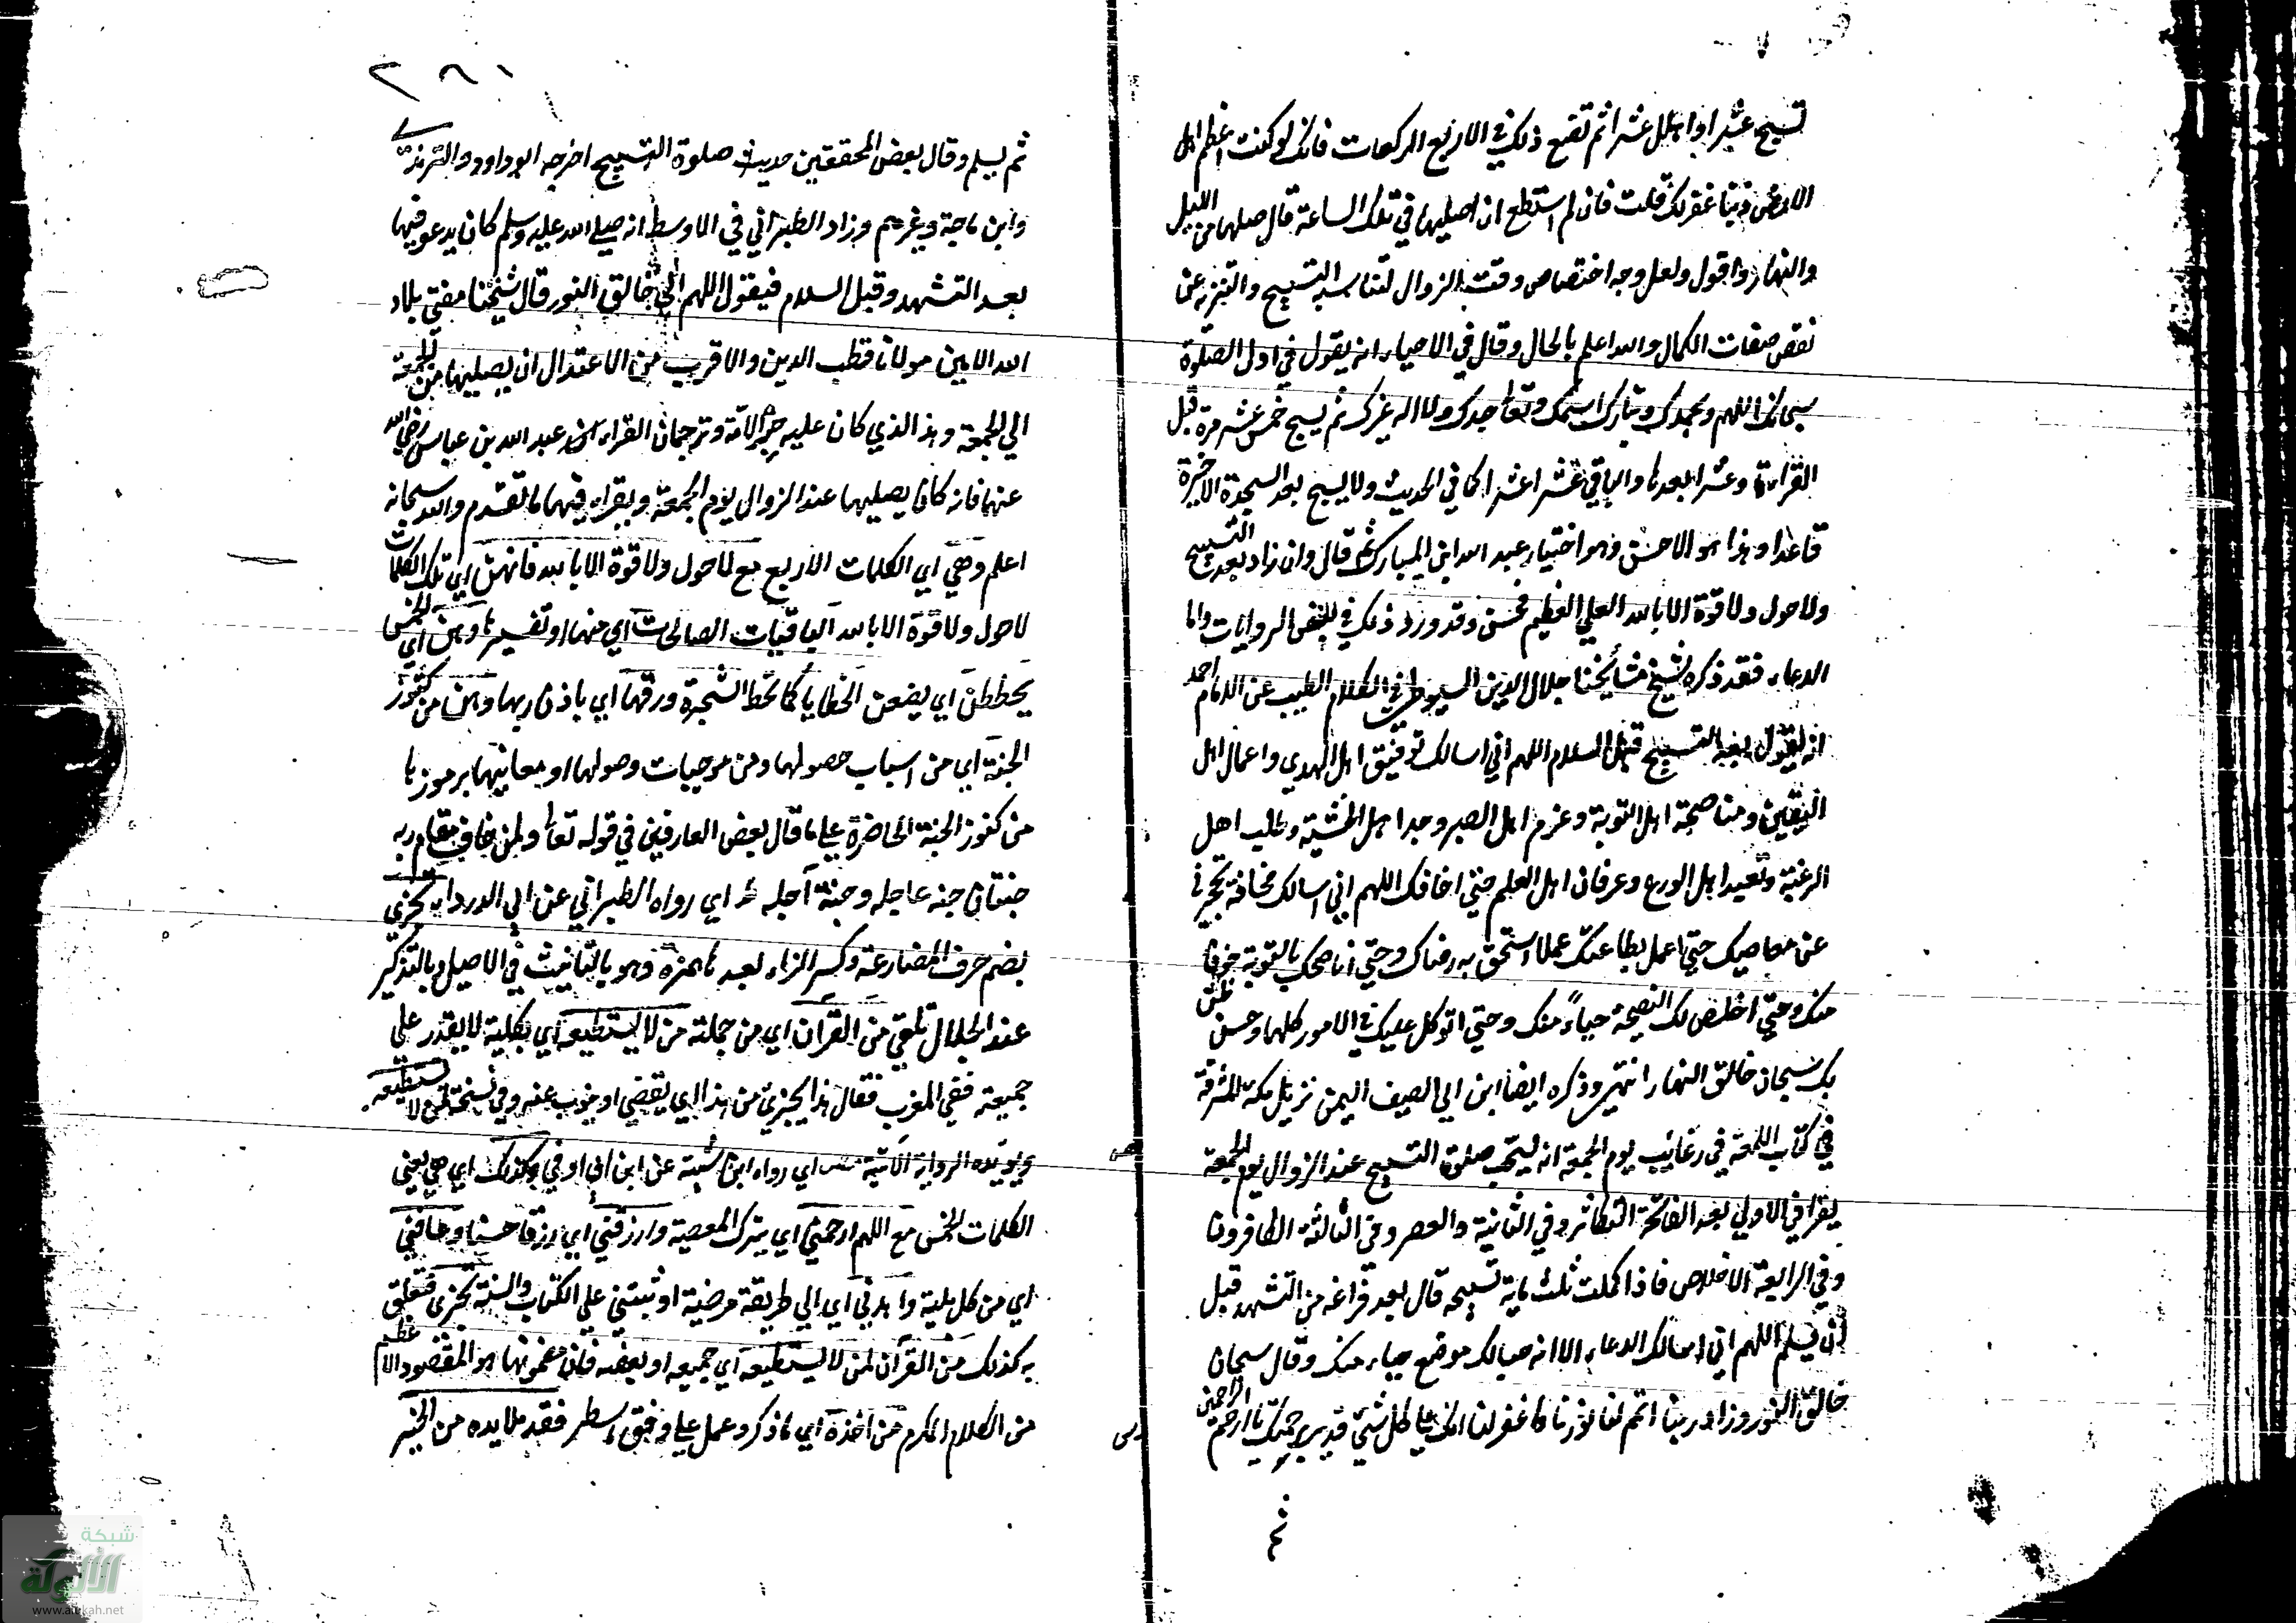 تسبح عشرا وا هلل عشرا ثم تصنع ذلك في الاربع الركعات فانك لو كنت اعظم اهل
الارض ذنبا غفر لك قلت فان لم استطع ان اصليها في تلك الساعة قال صلها من الليل
والنهار واقول ولعل وجه اختصاص وقت الزوال لتناسبه التسبيح والتنزيه عما
نقص صفات الكمال والله اعلم بالحال وقال في الاحياء انه يقول في اول الصلوة
سبحانك اللهم وبحمدك وتبارك اسمك وتعالى جدك ولا اله غيرك ثم يسبح خمس عشرة مرة قبل
القراءة وعشرا بعدها والباقي عشرا عشرا كما في الحديث ولا يسبح بعد السجدة الاخيرة
قاعدا وهذا هو الاحسن وهو اختيار عبد الله ابن المبارك ثم قال وان زاد بعد التسبيح
ولا حول ولا قوة الا بالله العلي العظيم فحسن وقد ورد ذلك في بعض الروايات واما
الدعاء فقد ذكره شيخ مشايخنا جلال الدين السيوطي في الكلام الطيب عن الامام احمد
انه يقول بعد التسبيح قبل السلام اللهم اني اسالك توفيق اهل الهدي واعمال اهل
اليقين ومناصحة اهل التوبة وعزم اهل الصبر وجد اهل الخشية وطلب اهل
الرغبة وتعبد اهل الورع وعرفان اهل العلم حتي اخافك اللهم اني اسالك مخافة تحجزني
عن معاصيك حتي اعمل بطاعتك عملا استحق به رضاك وحتي اناصحك بالتوبة خوفا
منك وحتي اخلص لك النصيحة حياءً منك وحتي اتوكل عليك في الامور كلها وحسن ظن
بك سبحان خالق النهار انتهي وذكره ايضا ابن ابي الصيف اليمن نزيل مكة المشرفة
في كتاب اللمعة في رغائب يوم الجمعة انه يستحب صلوة التسبيح عند الزوال يوم الجمعة
يقرا في الاولي بعد الفاتحة التكاثر وفي الثانية والعصر وفي الثالثة الكافرون
وفي الرابعة الاخلاص فاذا كملت ثلث ماية تسبيحه قال بعد فراغه من التشهد قبل
ان يسلم اللهم اني اسالك الدعاء الا انه حياء منك وقال سبحان
خالق النور وزاد ربنا اتمم لنا نورنا واغفر لنا انك علي كل شئ قدير برحمتك يا ارحم الراحمين
ثم
٢٦١
ثم يسلم وقال بعض المحققين حديث صلوة التسبيح اخرجه ابو داوود والترمذي
وابن ماجة وغيرهم وزاد الطبراني في الاوسط انه صلي الله عليه وسلم كان يدعو فيها
بعد التشهد وقبل السلام فيقول اللهم الي خالق النور قال شيخنا مفتي بلاد
الله الامين مولانا قطب الدين والاقرب من الاعتدال ان يصليها من الجمعة
الي الجمعة وهذا الذي كان عليه حبر الامة وترجمان القران عبد الله بن عباس رضي الله
عنهما فانه كان يصليها عند الزوال يوم الجمعة ويقراء فيهما ما تقدم والله سبحانه
اعلم وهي اي الكلمات الاربع مع لا حول ولا قوة الا بالله فانهن اي تلك الكلمات
لا حول ولا قوة الا بالله الباقيات الصالحات اي منها او تفسيرها وهن اي الخمس
يحططن اي يضعن الخطايا كما تحط الشجرة ورقها اي باذن ربها وهن من كنوز
الجنة اي من اسباب حصولها ومن موجبات وصولها او معانيها برموزها
من كنوز الجنة الحاضرة علي ما قال بعض العارفين في قوله تعالى ولمن خاف مقام ربه
جنتان جنه عاجله وجنة آجله ط اي رواه الطبراني عن ابي الدرداء تجزي
بضم حرف المضارعة وكسر الزاء بعدها همزة وهو بالتانيث في الاصيل وبالتذكير
عند الجلال تلقي من القران اي من جملته من لا يستطيعه اي بكلية لا يقدر علي
جميعته ففي المغرب فقال هذا يجزي من هذا اي يقضي او ينوب عنه وفي نسخة لمن لا يستطيعه
ويؤيده الرواية الآتية مص اي رواه ابن شيبة عن ابن ابي اوفي وكذلك اي هي يعني
الكلمات الخمس مع اللهم ارحمني اي بترك المعصية وارزقني اي رزقا حسنا وعافني
اي من كل بلية واهدني اي الي طريقة مرضية او ثبتني علي الكتاب والسنة تجزي فتعلق
به كذلك من القرآن لمن لا يستطيعه اي جميعه او بعضه فان مضمونها هو المقصود الاعظم
من الكلام المكرم من اخذه اي ما ذكر وعمل علي وفق ما سطر فقد ملأ يده من الخير
شبكة
الألوكة
www.alukah.net